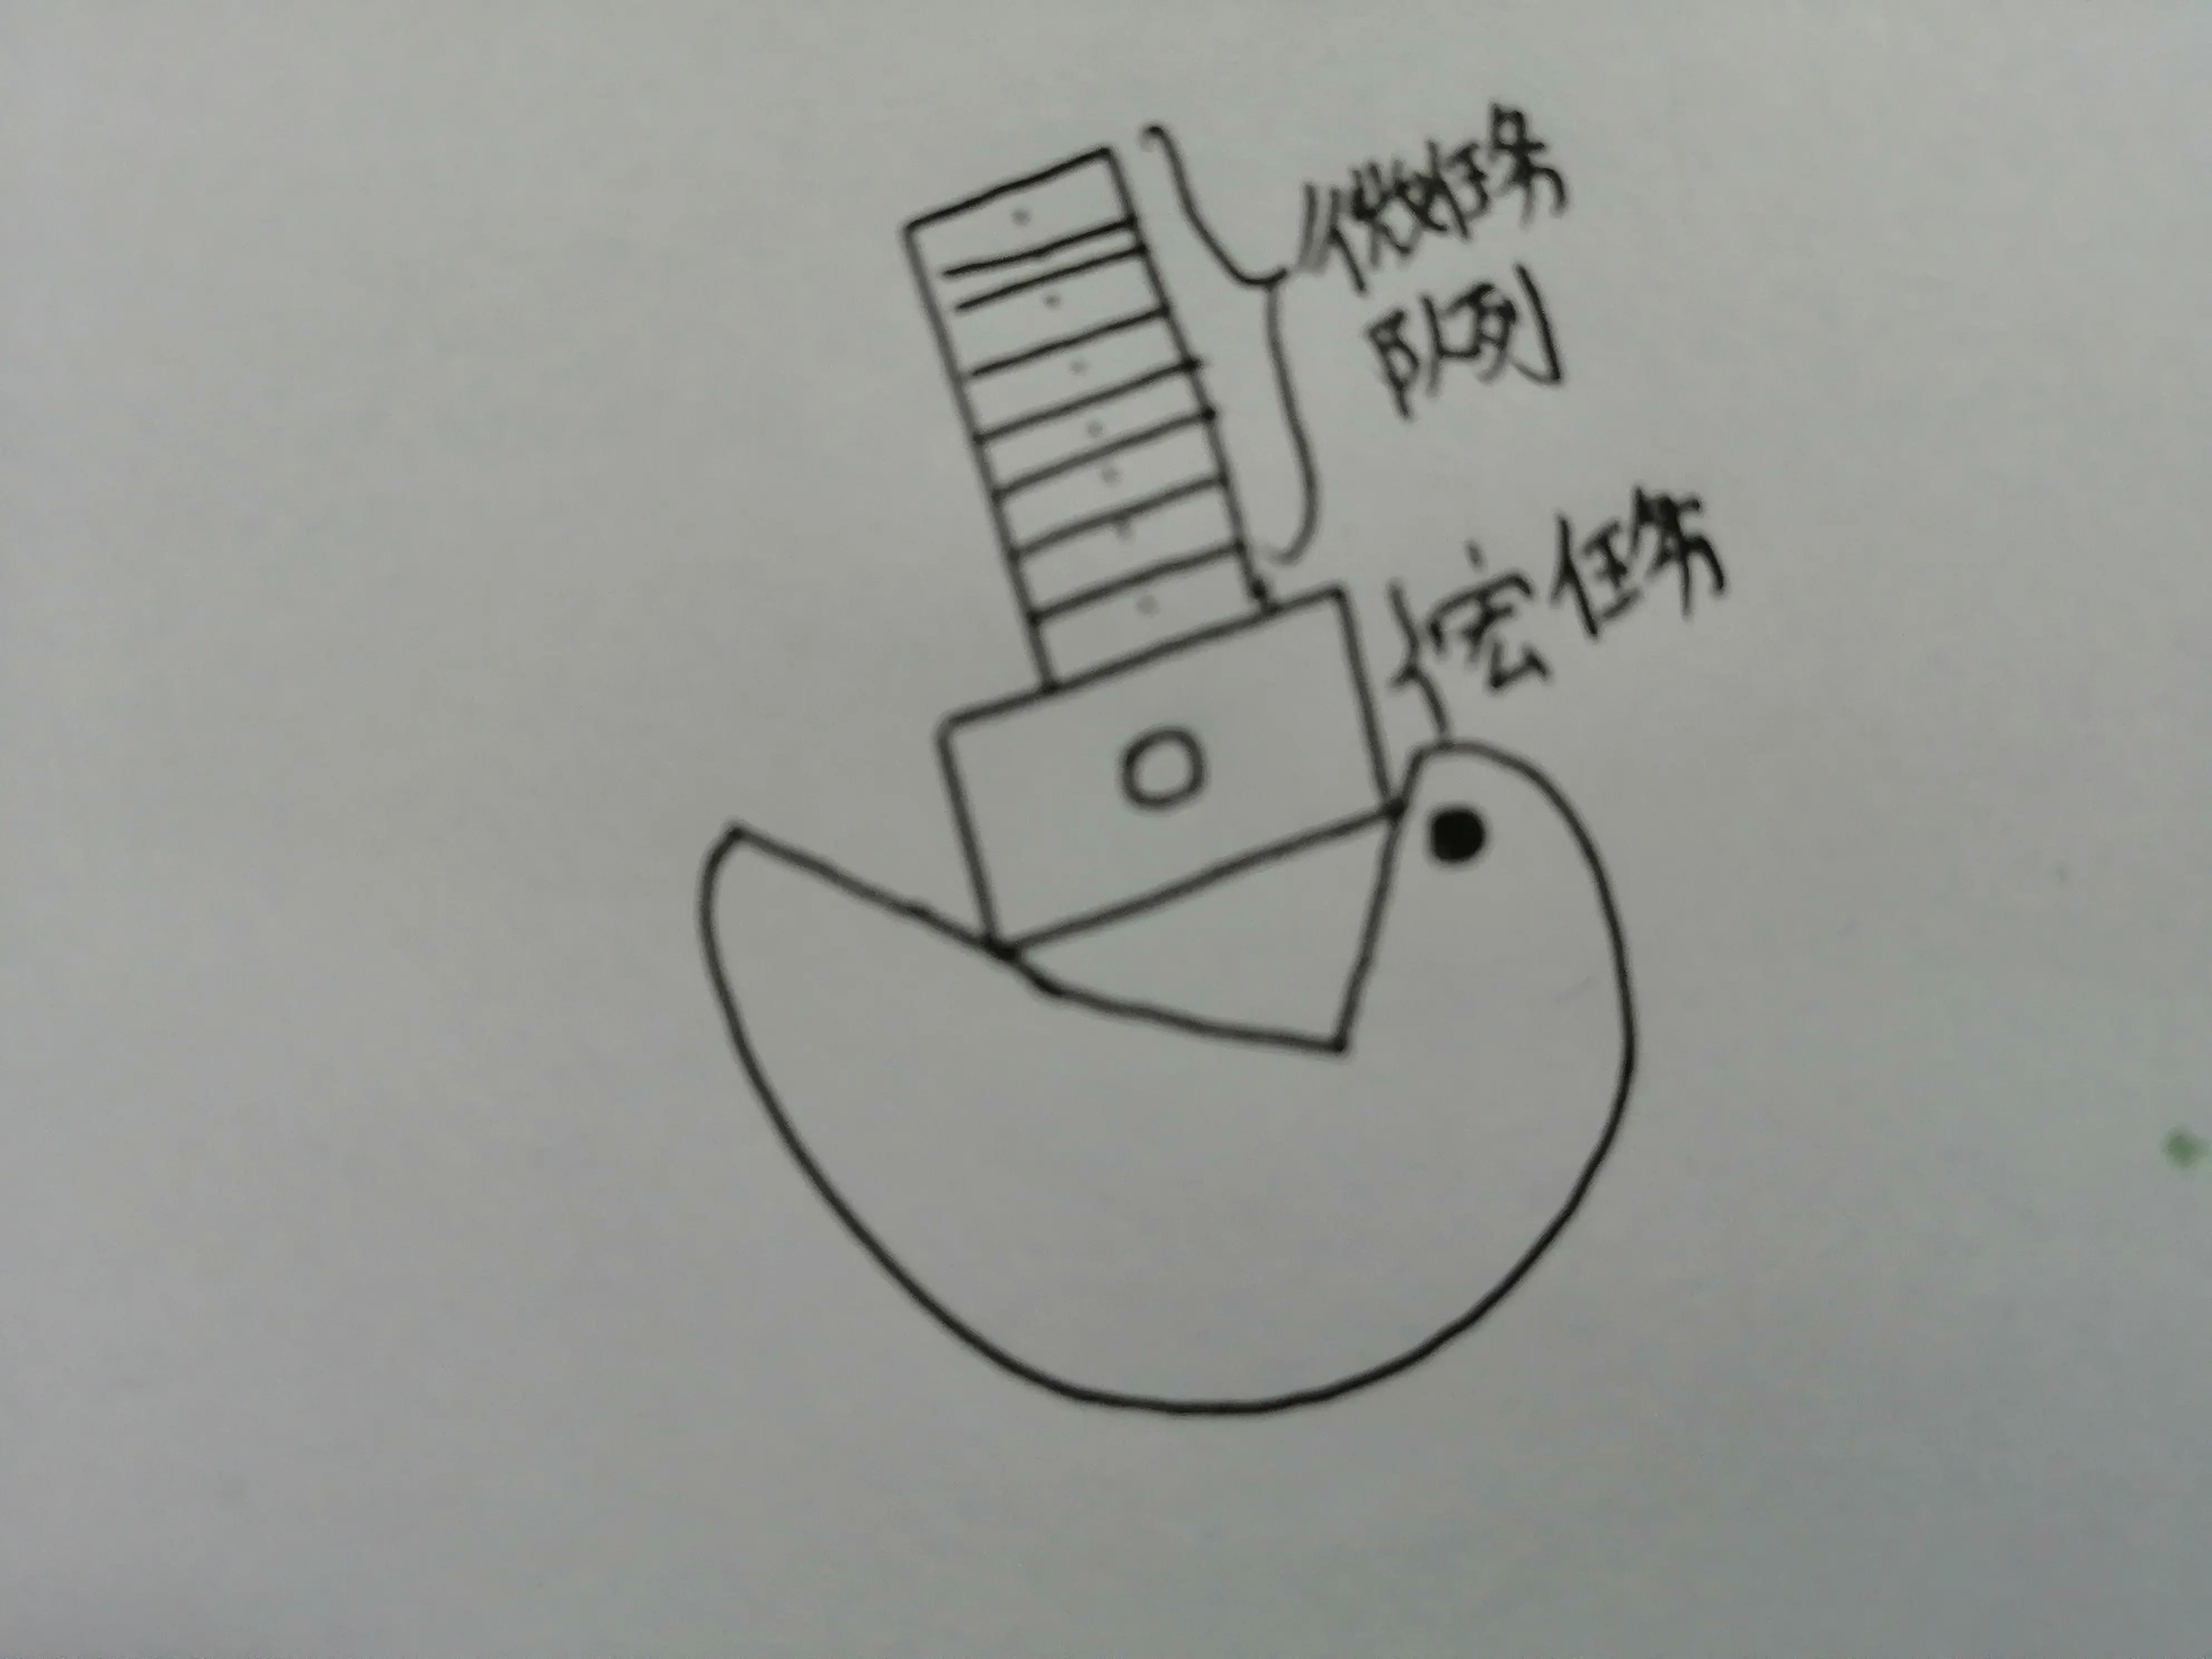 微任务
队列
宏任务